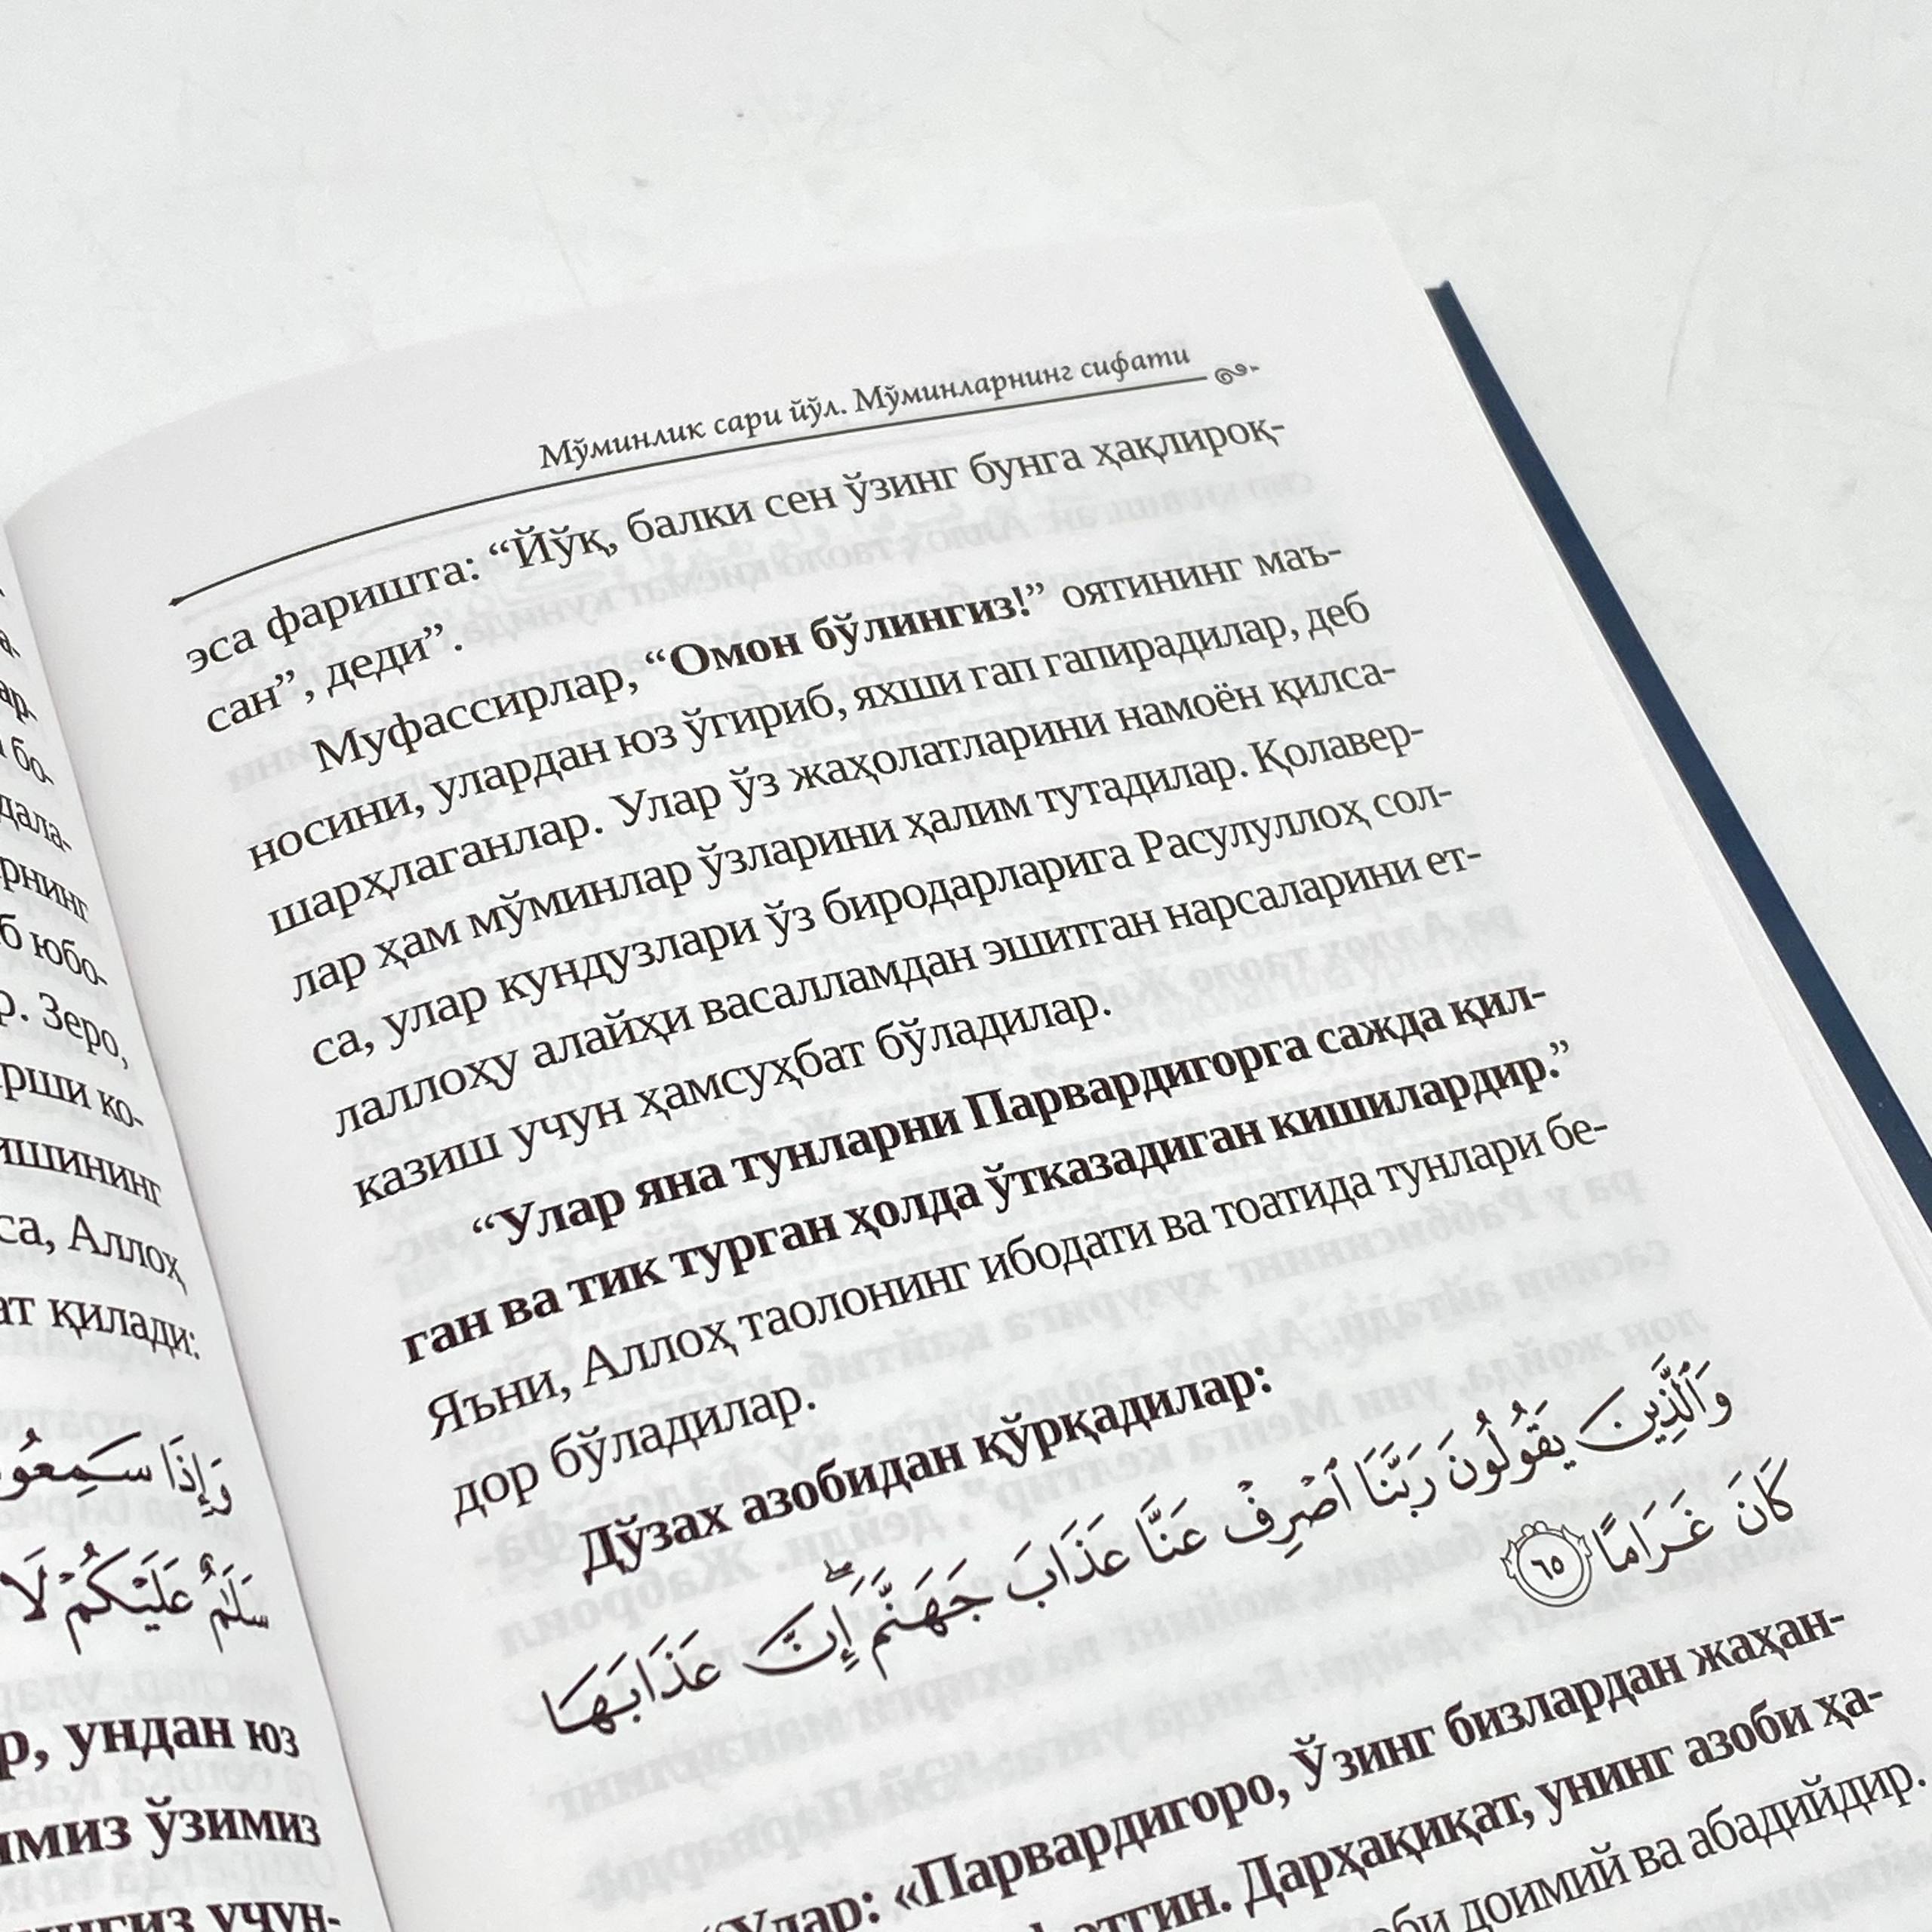 дала-
рнинг
б юбо-
р. Зеро,
рши ко-
ишининг
са, Аллоҳ
ат қилади:
وَإِذَا سَمِعُو
سَلَٰمٌ عَلَيْكُمْ لَا
р, ундан юз
имиз ўзимиз
нгиз учун-
Мўминлик сари йўл. Мўминларнинг сифати
эса фаришта: “Йўқ, балки сен ўзинг бунга ҳақлироқ-
сан”, деди”.
Муфассирлар, “Омон бўлингиз!” оятининг маъ-
носини, улардан юз ўгириб, яхши гап гапирадилар, деб
шарҳлаганлар. Улар ўз жаҳолатларини намоён қилса-
лар ҳам мўминлар ўзларини ҳалим тутадилар. Қолавер-
са, улар кундузлари ўз биродарларига Расулуллоҳ сол-
лаллоҳу алайҳи васалламдан эшитган нарсаларини ет-
казиш учун ҳамсуҳбат бўладилар.
“Улар яна тунларни Парвардигорга сажда қил-
ган ва тик турган ҳолда ўтказадиган кишилардир.”
Яъни, Аллоҳ таолонинг ибодати ва тоатида тунлари бе-
дор бўладилар.
Дўзах азобидан қўрқадилар:
وَٱلَّذِينَ يَقُولُونَ رَبَّنَا ٱصْرِفْ عَنَّا عَذَابَ جَهَنَّمَ ۖ إِنَّ عَذَابَهَا
كَانَ غَرَامًا ٦٥
“Улар: «Парвардигоро, Ўзинг бизлардан жаҳан-
этгин. Дарҳақиқат, унинг азоби ҳа-
оби доимий ва абадийдир.